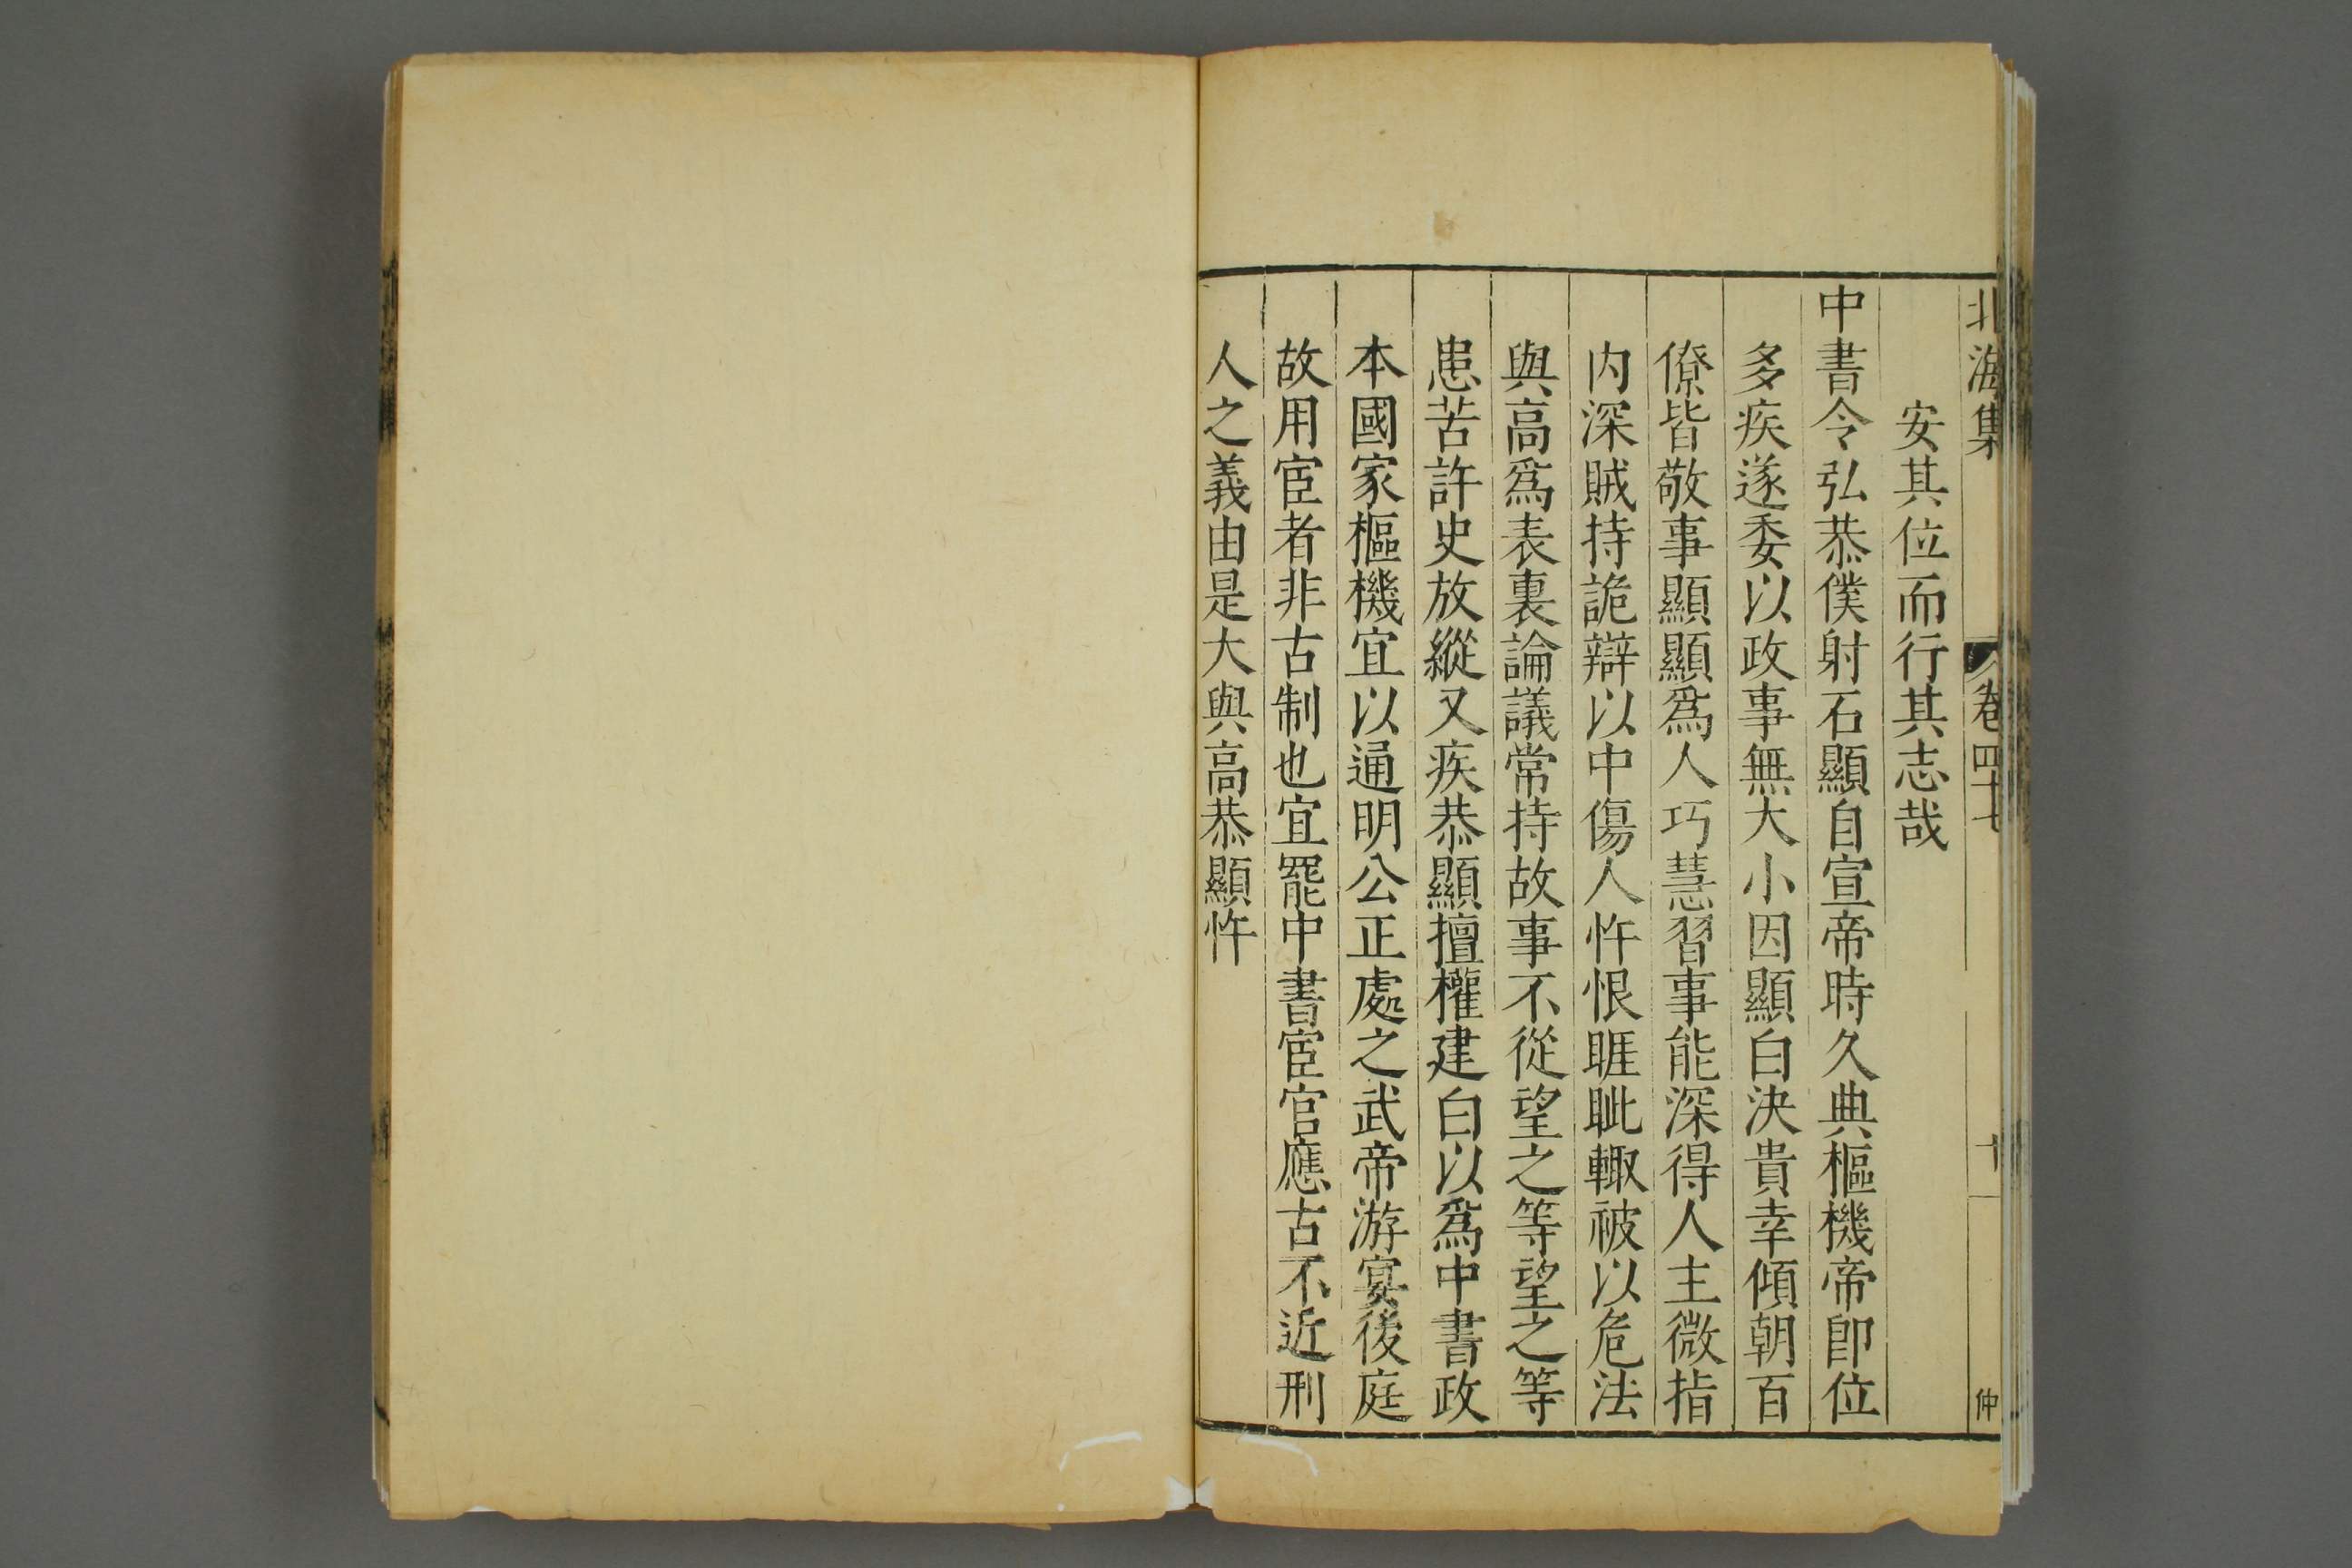 北海集 卷四十七 十 仲
安其位而行其志哉
中書令弘恭僕射石顯自宣帝時久典樞機帝卽位
多疾遂委以政事無大小因顯白決貴幸傾朝百
僚皆敬事顯顯爲人巧慧習事能深得人主微指
内深賊持詭辯以中傷人忤恨睚眦輙被以危法
與高爲表裏論議常持故事不從望之等望之等
患苦許史放縱又疾恭顯擅權建白以爲中書政
本國家樞機宜以通明公正處之武帝游宴後庭
故用宦者非古制也宜罷中書宦官應古不近刑
人之義由是大與高恭顯忤